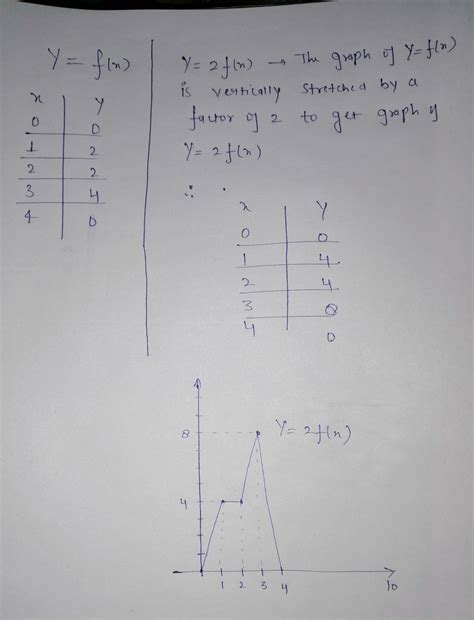 Y = f(x)
x Y
0 0
1 2
2 2
3 4
4 0
Y = 2f(x) → The graph of Y=f(x)
is vertically stretched by a
factor of 2 to get graph of
Y = 2f(x)
∴
x Y
0 0
1 4
2 4
3 8
4 0
8
Y = 2f(x)
4
1 2 3 4 10